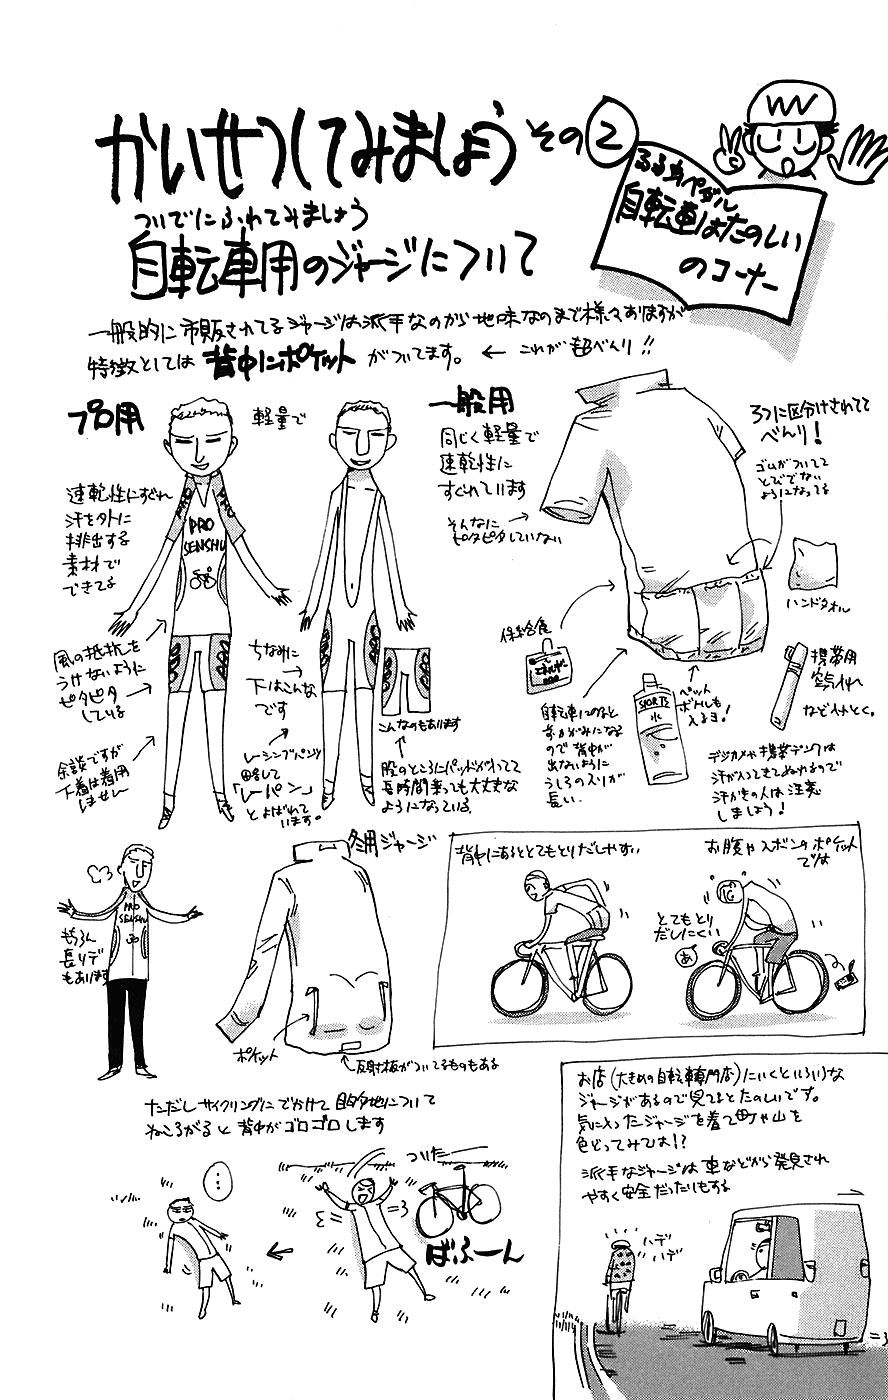 かいせつしてみましょう その2
るるる♪ペダル
自転車はたのしい
のコーナー
ついでにふれてみましょう
自転車用のジャージについて
一般的に市販されてるジャージは派手なのから地味なのまで様々ありますが
特徴としては背中にポケットがついてます。 ← これが超べんり!!
プロ用
軽量で
速乾性にすぐれ
汗を外に
排出する
素材で
できてる
PRO
SENSHU
風の抵抗を
うけないように
ピタピタ
している
余談ですが
下着は着用
しませーん
ちなみに
下はこんな
です
レーシングパンツ
略して
「レーパン」
とよばれて
います。
こんなのもあります
股のところにパッドが入ってて
長時間乗っても大丈夫な
ようになっている。
一般用
同じく軽量で
速乾性に
すぐれています
そんなに
ピタピタしていない
3つに区分けされてて
べんり!
ゴムがついてて
とびでない
ようになってる
ハンドタオル
補給食
エネルギー
自転車にのると
前かがみになる
ので背中が
出ないように
うしろのスソが
長い
SPORTS
水
ペット
ボトルも
入るヨ!
携帯用
空気入れ
などイロイロ。
デジカメや携帯デンワは
汗が入ってきてぬれるので
汗かきの人は注意
しましょう!
PRO
SENSHU
もちろん
長ソデ
もあります
冬用ジャージ
ポケット
反射板がついてるものもある
背中にあるととてもとりだしやすい
お腹やズボンのポケット
では
とてもとり
だしにくい
あ
ただしサイクリングにでかけて目的地について
ねころがると背中がゴロゴロします
ついたー
ばふーん
…
お店(大きめの自転車専門店)にいくといろいろな
ジャージがあるので見てるとたのしいです。
気に入ったジャージを着て町や山を
色どってみては!?
派手なジャージは車などから発見され
やすく安全だったりもする
ハデ
ハデ